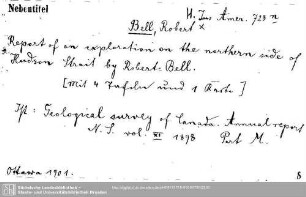 Nebentitel
H. Jus Amer. 728 m
Bell, Robert x
Report of an exploration on the northern side of
Hudson Strait by Robert Bell.
[Mit 4 Tafeln und 1 Karte]
Ist: Geological survey of Canada. Annual report
N. S. vol. XI 1898 Part M.
Ottawa 1901.
8